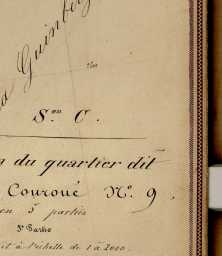 a Guinberg
Son C.
n du quartier dit
Couroué No. 9.
en 5 parties
5e Partie
it à l'échelle de 1 à 2000.